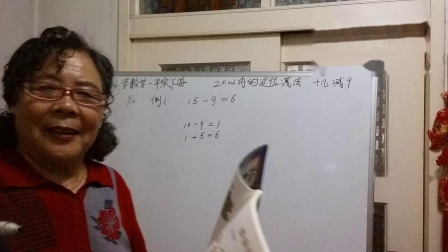 小学数学一年级下册 20以内的退位减法 十几减9
P10 例1 15-9=6
10-9=1
1+5=6